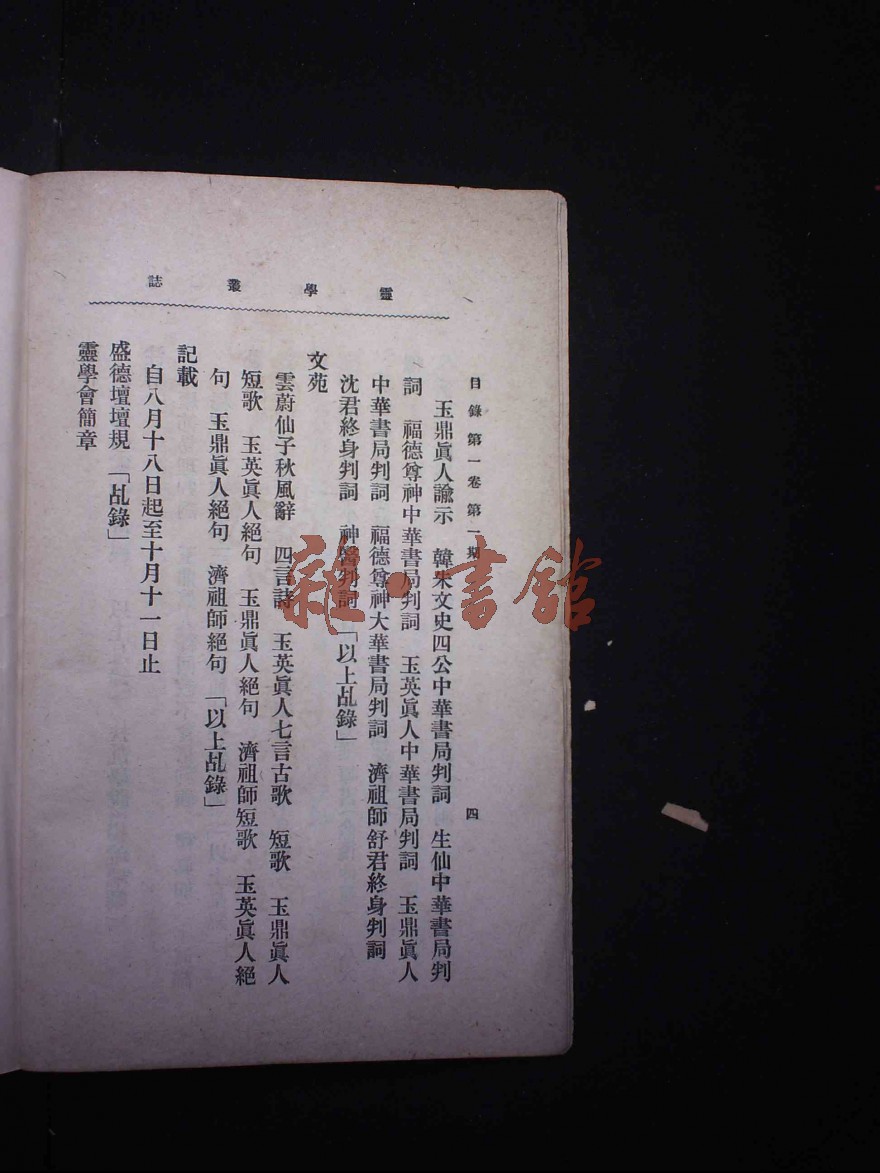 靈學叢誌
目錄第一卷第一期
四
玉鼎眞人諭示　韓朱文史四公中華書局判詞　生仙中華書局判
詞　福德尊神中華書局判詞　玉英眞人中華書局判詞　玉鼎眞人
中華書局判詞　福德尊神大華書局判詞　濟祖師舒君終身判詞
沈君終身判詞　神醫判詞「以上乩錄」
文苑
雲蔚仙子秋風辭　四言詩　玉英眞人七言古歌　短歌　玉鼎眞人
短歌　玉英眞人絕句　玉鼎眞人絕句　濟祖師短歌　玉英眞人絕
句　玉鼎眞人絕句　濟祖師絕句　「以上乩錄」
記載
自八月十八日起至十月十一日止
盛德壇壇規「乩錄」
靈學會簡章
雜·書館